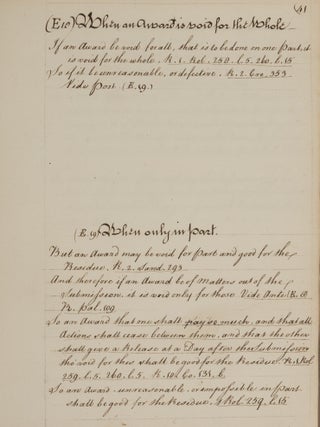 41
(E.10.) When an Award is void for the Whole
If an Award be void for all, that is to be done on one part, it
is void for the whole. R. 1. Rol. 250. l. 5. 260. l. 15
So if it be unreasonable, or defective. R. 2. Cro. 353
Vide Post (E. 19.)
(E. 19) When only in Part.
But an Award may be void for Part and good for the
Residue. R. 2. Saund. 293
And therefore if an Award be of Matters out of the
Submission, it is void only for those Vide Ante
R. Pal. 109
So an Award that one shall pay so much, and that all
Actions shall cease between them, and that the other
shall give a Release at a Day after the Submission
tho void for this shall be good for the Residue R. 1. Rol
259. l. 5. 260. l. 5. R. 10. Co. 131. b
So an Award unreasonable or impossible in part
shall be good for the Residue. 1 Rol 259. l. 15